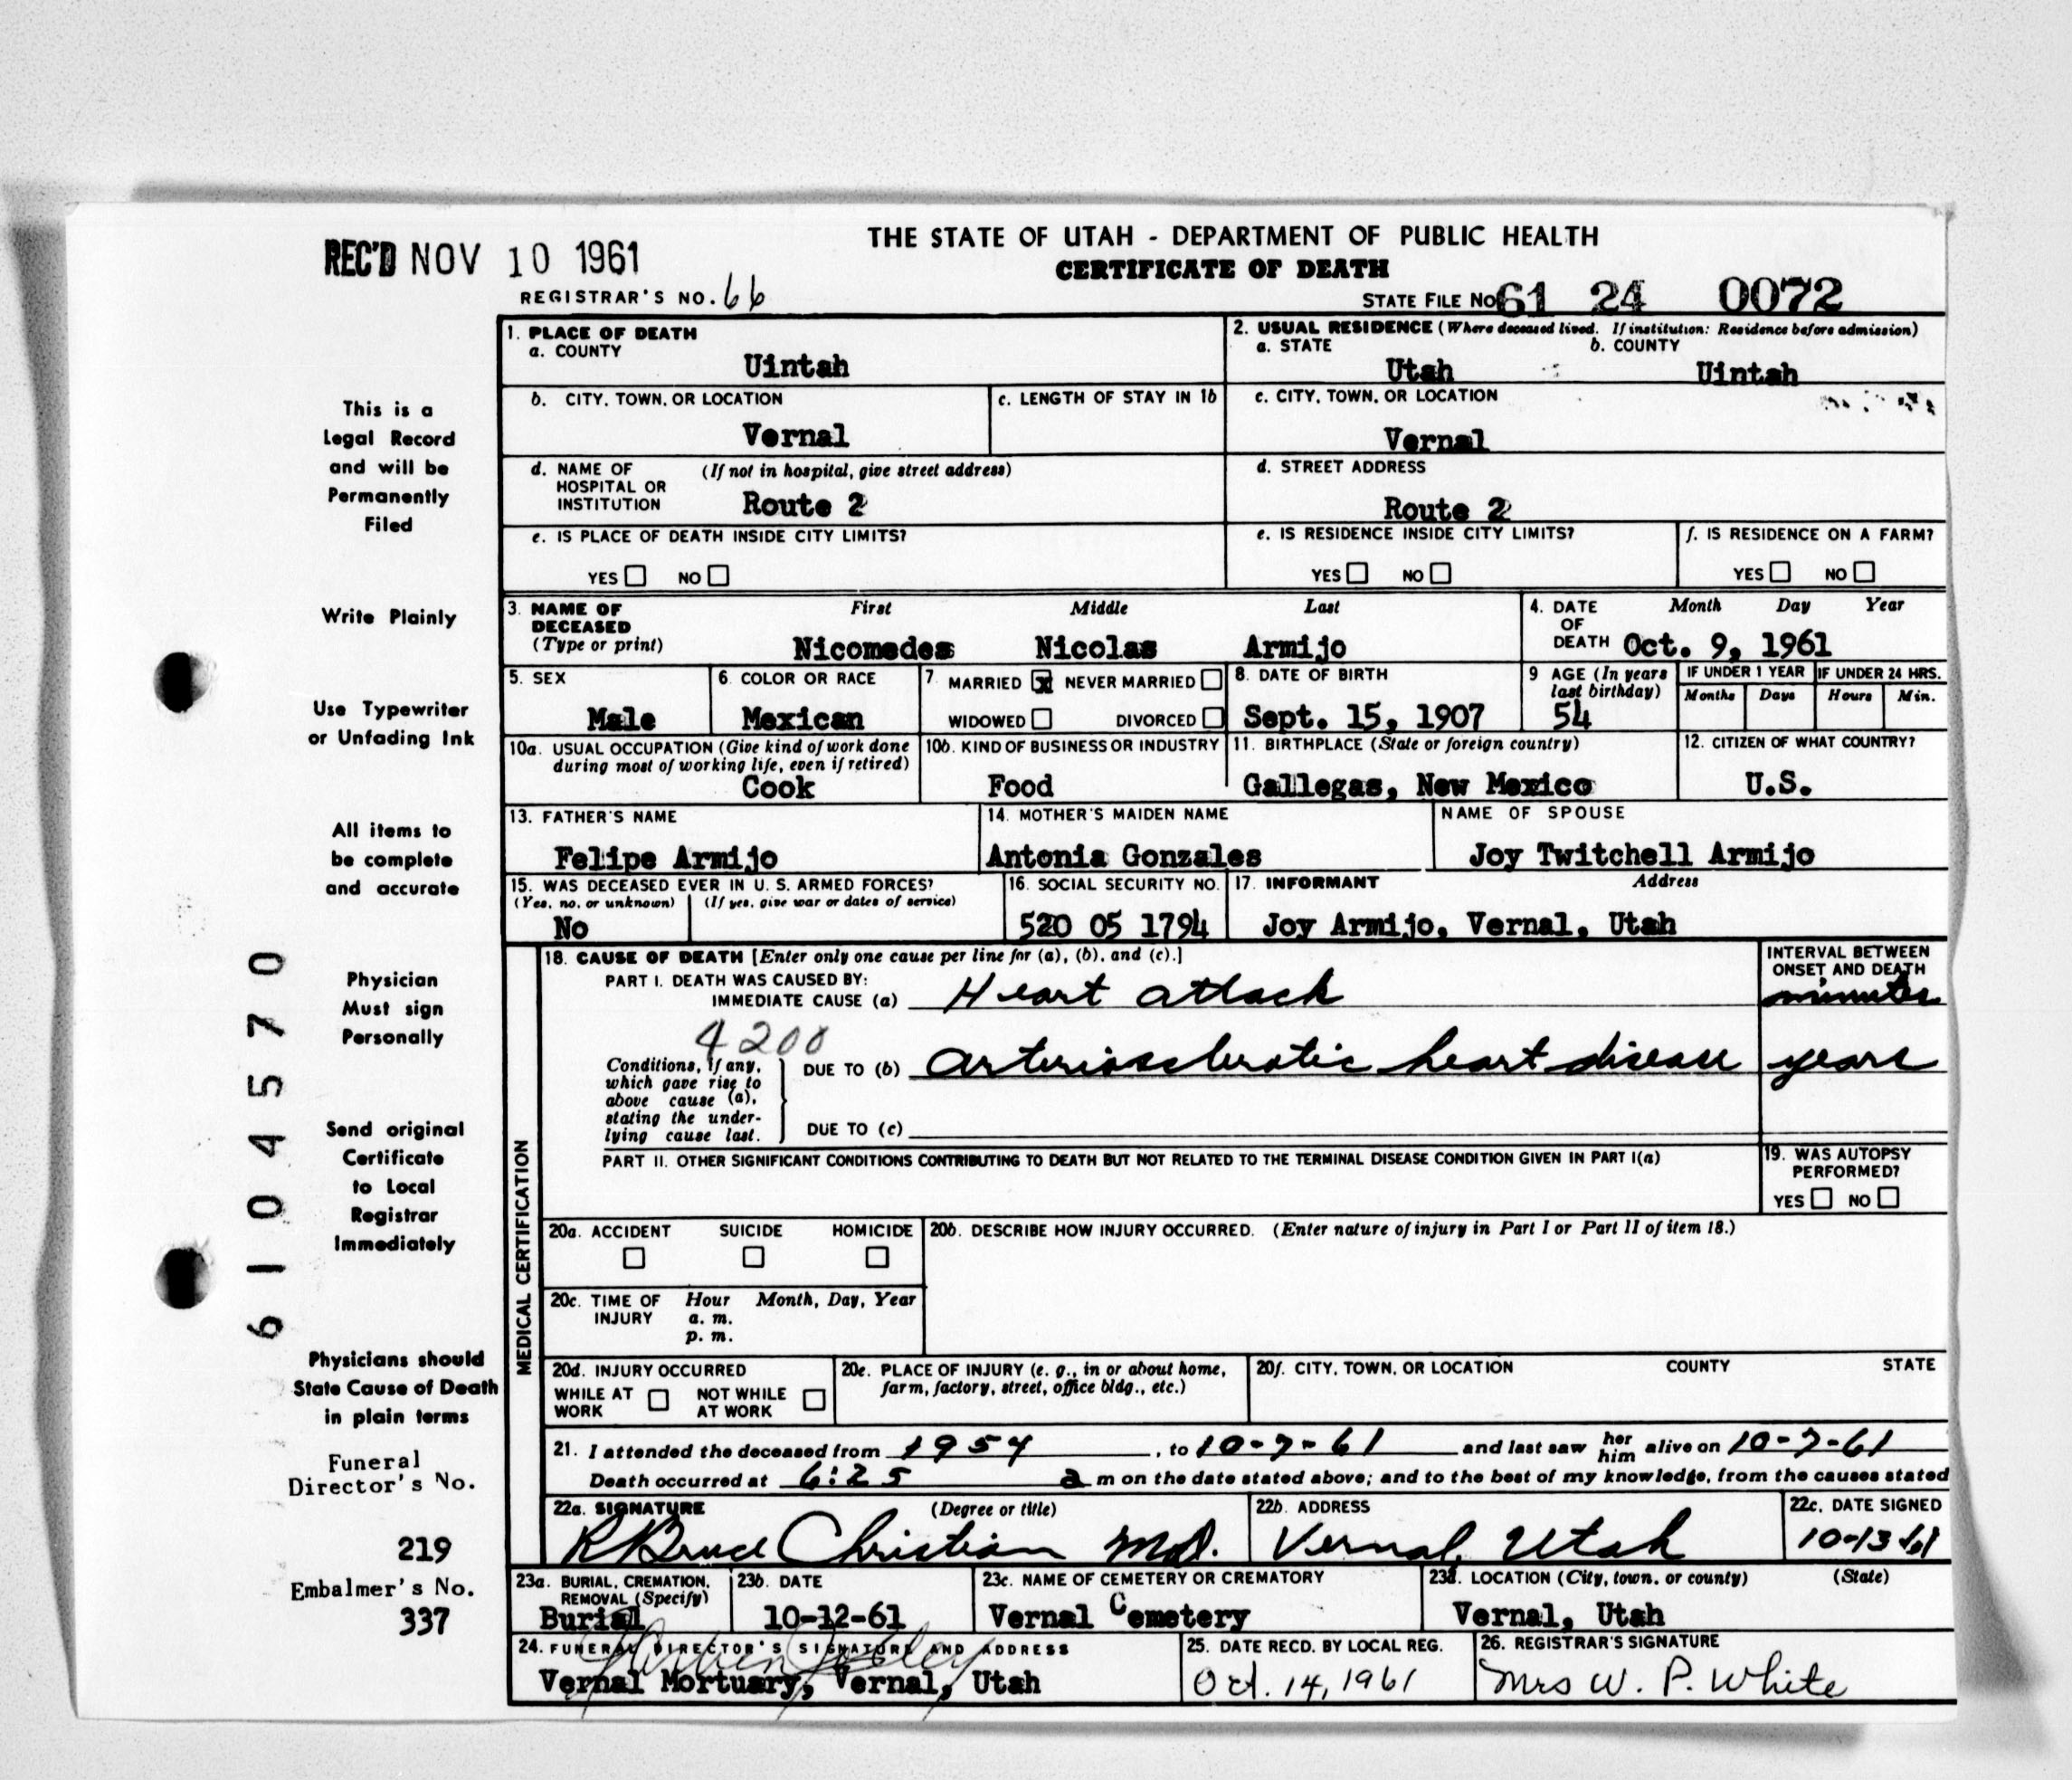 THE STATE OF UTAH - DEPARTMENT OF PUBLIC HEALTH
REC'D NOV 10 1961
CERTIFICATE OF DEATH
REGISTRAR'S NO. 66
STATE FILE NO 61 24 0072
1. PLACE OF DEATH
a. COUNTY
Uintah
2. USUAL RESIDENCE (Where deceased lived. If institution: Residence before admission)
a. STATE b. COUNTY
Utah Uintah
b. CITY, TOWN, OR LOCATION
Vernal
c. LENGTH OF STAY IN 1b
c. CITY, TOWN, OR LOCATION
Vernal
d. NAME OF HOSPITAL OR INSTITUTION (If not in hospital, give street address)
Route 2
d. STREET ADDRESS
Route 2
e. IS PLACE OF DEATH INSIDE CITY LIMITS?
YES NO
e. IS RESIDENCE INSIDE CITY LIMITS?
YES NO
f. IS RESIDENCE ON A FARM?
YES NO
3. NAME OF DECEASED (Type or print) First Middle Last
Nicomedes Nicolas Armijo
4. DATE OF DEATH Month Day Year
Oct. 9, 1961
5. SEX
Male
6. COLOR OR RACE
Mexican
7. MARRIED x NEVER MARRIED
WIDOWED DIVORCED
8. DATE OF BIRTH
Sept. 15, 1907
9 AGE (In years last birthday)
54
IF UNDER 1 YEAR IF UNDER 24 HRS.
Months Days Hours Min.
10a. USUAL OCCUPATION (Give kind of work done
during most of working life, even if retired)
Cook
10b. KIND OF BUSINESS OR INDUSTRY
Food
11. BIRTHPLACE (State or foreign country)
Gallegas, New Mexico
12. CITIZEN OF WHAT COUNTRY?
U.S.
13. FATHER'S NAME
Felipe Armijo
14. MOTHER'S MAIDEN NAME
Antonia Gonzales
NAME OF SPOUSE
Joy Twitchell Armijo
15. WAS DECEASED EVER IN U. S. ARMED FORCES?
(Yes, no, or unknown) (If yes, give war or dates of service)
No
16. SOCIAL SECURITY NO.
520 05 1794
17. INFORMANT Address
Joy Armijo, Vernal, Utah
MEDICAL CERTIFICATION
18. CAUSE OF DEATH [Enter only one cause per line for (a), (b), and (c).]
INTERVAL BETWEEN
ONSET AND DEATH
PART I. DEATH WAS CAUSED BY:
IMMEDIATE CAUSE (a) Heart attack minutes
4200
Conditions, if any,
which gave rise to
above cause (a),
stating the under-
lying cause last.
DUE TO (b) arteriosclerotic heart disease years
DUE TO (c)
PART II. OTHER SIGNIFICANT CONDITIONS CONTRIBUTING TO DEATH BUT NOT RELATED TO THE TERMINAL DISEASE CONDITION GIVEN IN PART I(a)
19. WAS AUTOPSY
PERFORMED?
YES NO
20a. ACCIDENT SUICIDE HOMICIDE
20b. DESCRIBE HOW INJURY OCCURRED. (Enter nature of injury in Part I or Part II of item 18.)
20c. TIME OF INJURY Hour Month, Day, Year
a. m.
p. m.
20d. INJURY OCCURRED
WHILE AT WORK NOT WHILE AT WORK
20e. PLACE OF INJURY (e. g., in or about home,
farm, factory, street, office bldg., etc.)
20f. CITY, TOWN, OR LOCATION COUNTY STATE
21. I attended the deceased from 1954, to 10-7-61 and last saw her him alive on 10-7-61
Death occurred at 6:25 a m on the date stated above; and to the best of my knowledge, from the causes stated
22a. SIGNATURE (Degree or title)
R Bruce Christian M.D.
22b. ADDRESS
Vernal, Utah
22c. DATE SIGNED
10-13-61
23a. BURIAL, CREMATION,
REMOVAL (Specify)
Burial
23b. DATE
10-12-61
23c. NAME OF CEMETERY OR CREMATORY
Vernal Cemetery
23d. LOCATION (City, town, or county) (State)
Vernal, Utah
24. FUNERAL DIRECTOR'S SIGNATURE AND ADDRESS
Vernal Mortuary, Vernal, Utah
25. DATE RECD. BY LOCAL REG.
Oct. 14, 1961
26. REGISTRAR'S SIGNATURE
Mrs W. P. White
This is a
Legal Record
and will be
Permanently
Filed
Write Plainly
Use Typewriter
or Unfading Ink
All items to
be complete
and accurate
Physician
Must sign
Personally
Send original
Certificate
to Local
Registrar
Immediately
Physicians should
State Cause of Death
in plain terms
Funeral
Director's No.
219
Embalmer's No.
337
6104570